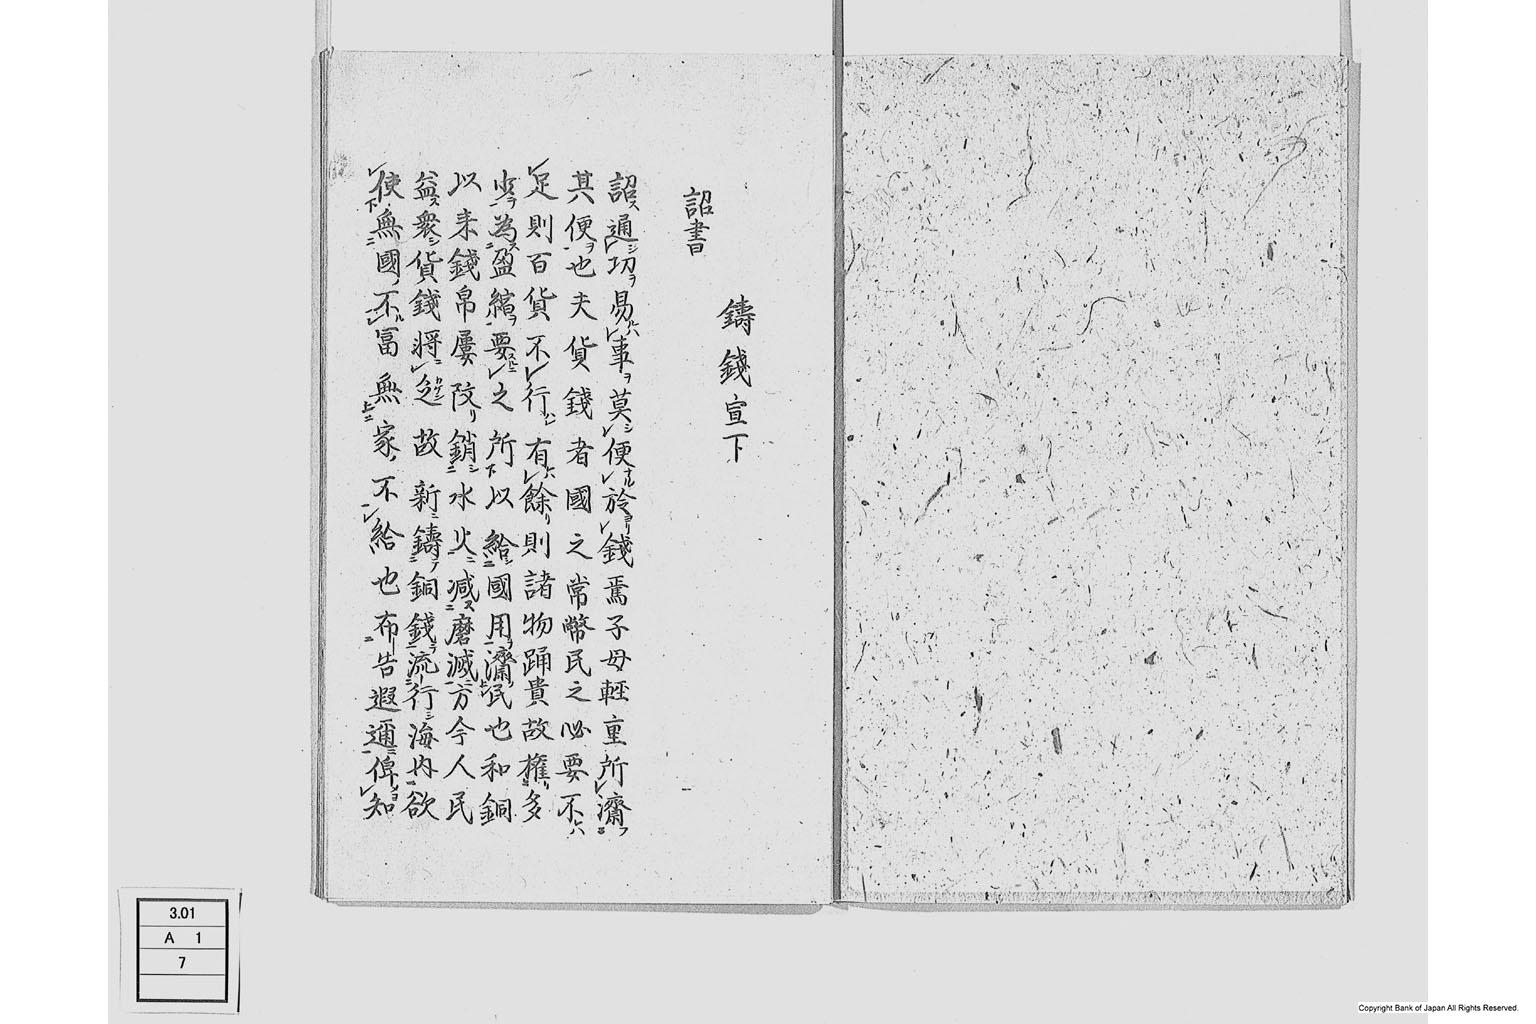 鑄錢宣下
詔書
詔通功易事莫便於錢焉子母輕重所濟
其便也夫貨錢者國之常幣民之必要不
足則百貨不行有餘則諸物踊貴故権多
少為盈縮要之所以給國用濟民也和銅
以来錢帛屢改銷水火減磨滅方今人民
益衆貨錢將乏故新鑄銅錢流行海内欲
使無國不富無家不給也布告遐邇俾知
3.01
A 1
7
Copyright Bank of Japan All Rights Reserved.